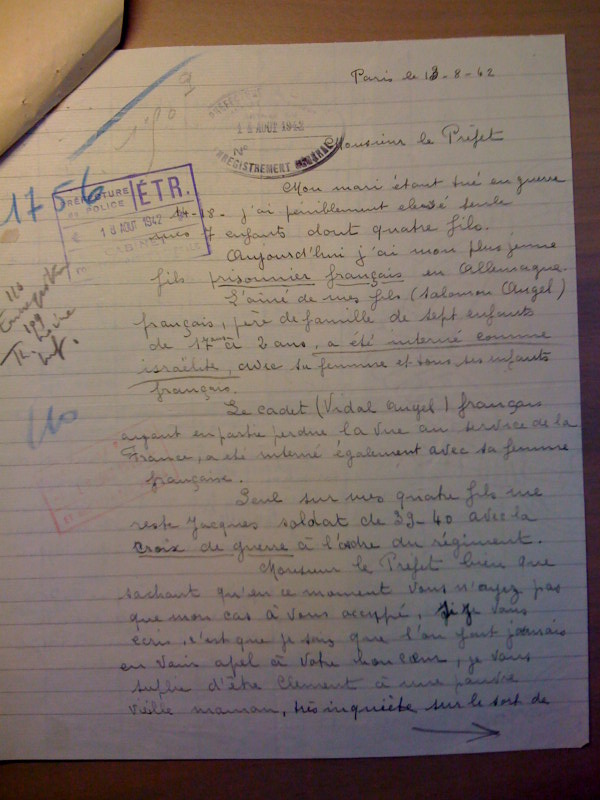 Paris le 13-8-42
18 AOUT 1942
No
ENREGISTREMENT GENERAL
Monsieur le Préfet
1756
PRÉFECTURE
DE POLICE
ÉTR.
18 AOUT 1942
Mon mari étant tué en guerre
14-18. j'ai péniblement elevé seule
après 7 enfants dont quatre fils.
Aujourd'hui j'ai mon plus jeune
fils prisonnier français en Allemagne.
L'ainé de mes fils (Salomon Angel)
français, père de famille de sept enfants
de 17 ans à 2 ans, a été interné comme
israélite, avec sa femme et tous ses enfants
français.
Le cadet (Vidal Angel) français
ayant en partie perdu la vue au service de la
France, a été interné également avec sa femme
française.
Seul sur mes quatre fils me
reste Jacques soldat de 39-40 avec la
croix de guerre à l'ordre du régiment.
Monsieur le Préfet bien que
sachant qu'en ce moment vous n'ayez pas
que mon cas à vous occuppé, si je vous
écris, c'est que je sais que l'on fait jamais
en vain apel à votre bon coeur, je vous
suplie d'être clément à une pauvre
vieille maman, très inquiète sur le sort de